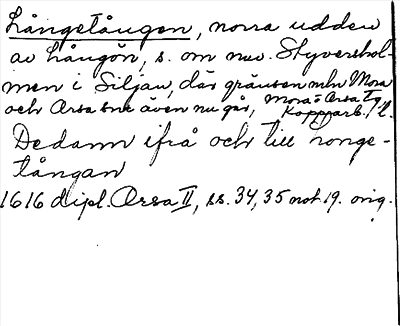 Långetången, norra udden
av Långön, s. om nuv. Styvershol-
men i Siljan, där gränsen mln Mora
och Orsa snr även nu går, Mora o Orsa Tg
Kopparb. l.
Dedann ifrå och till longe-
tångan
1616 dipl. Orsa II, ss. 34, 35 not 19. orig.